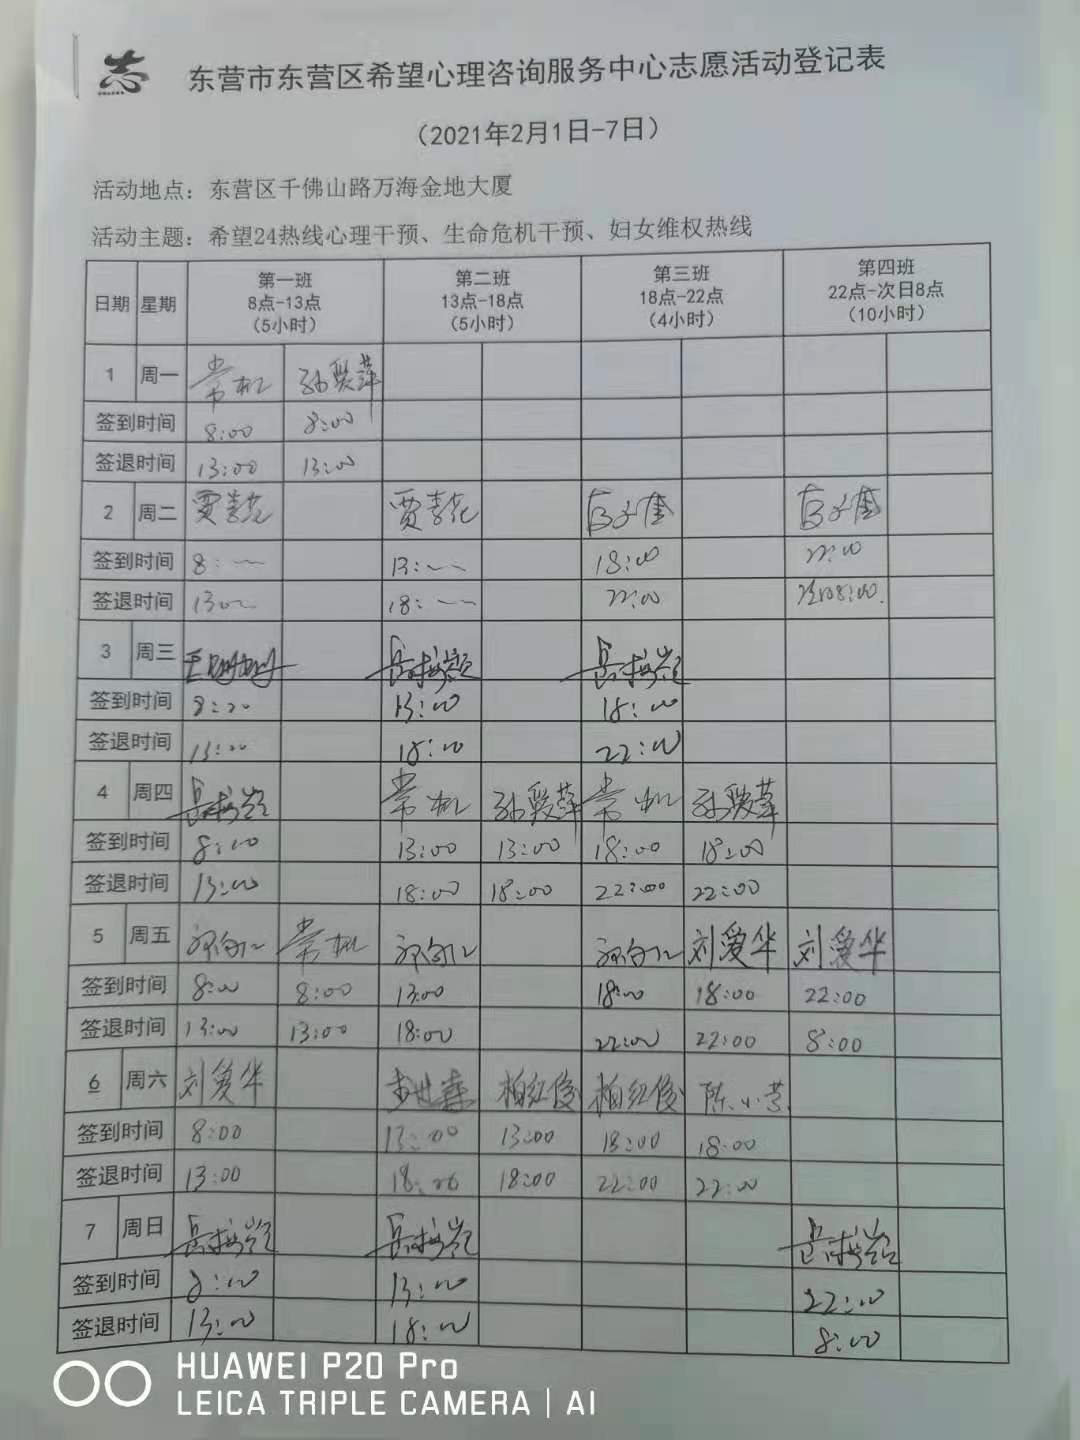 志
东营市东营区希望心理咨询服务中心志愿活动登记表
（2021年2月1日-7日）
活动地点：东营区千佛山路万海金地大厦
活动主题：希望24热线心理干预、生命危机干预、妇女维权热线
日期 星期 第一班 8点-13点 （5小时） 第二班 13点-18点 （5小时） 第三班 18点-22点 （4小时） 第四班 22点-次日8点 （10小时）
1 周一 常机
签到时间 8:00 8:00
签退时间 13:00 13:00
2 周二 贾青花 贾青花
签到时间 8: 13: 18:00 22:00
签退时间 13:00 18: 22:00 次日8:00.
3 周三
签到时间 8:00 13:00 18:00
签退时间 13:00 18:00 22:00
4 周四 常机 常机
签到时间 8:00 13:00 13:00 18:00 18:00
签退时间 13:00 18:00 18:00 22:00 22:00
5 周五 常机 刘爱华 刘爱华
签到时间 8:00 8:00 13:00 18:00 18:00 22:00
签退时间 13:00 13:00 18:00 22:00 22:00 8:00
6 周六 刘爱华 柏红俊 柏红俊 陈小芸
签到时间 8:00 13:00 13:00 18:00 18:00
签退时间 13:00 18:00 18:00 22:00 22:00
7 周日
签到时间 8:00 13:00 22:00
签退时间 13:00 18:00 8:00
HUAWEI P20 Pro
LEICA TRIPLE CAMERA | AI